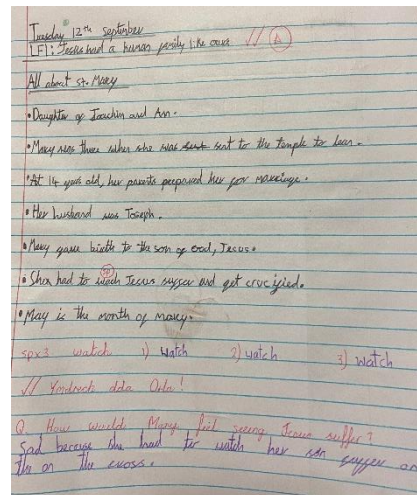 Tuesday 12th September
LFI: Jesus had a human family like ours // A
All about st. Mary
• Daughter of Joachim and Ann.
• Mary was three when she was sent to the temple to learn.
• At 14 years old, her parents prepared her for marriage.
• Her husband was Joseph.
• Mary gave birth to the son of God, Jesus.
• She had to wach Jesus suffer and get crucified.
• May is the month of mary.
spx3 watch 1) watch 2) watch 3) watch
// Ymdrech dda Orla!
Q. How would Mary feel seeing Jesus suffer?
Sad because she had to watch her son suffer
on the cross.